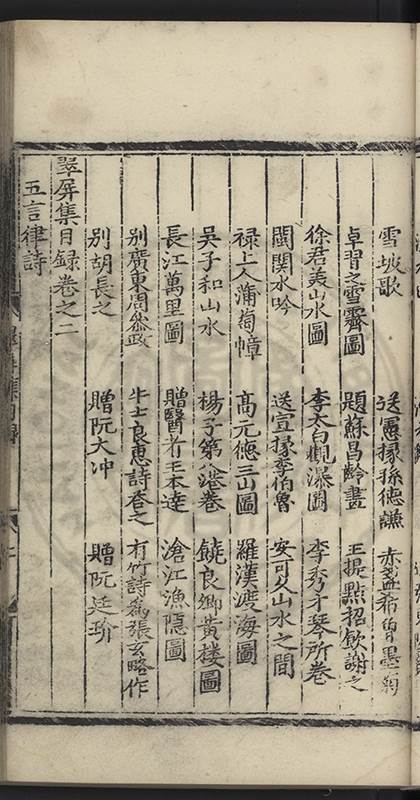 雪坡歌 送憲掾孫德謙 赤盞希曾墨菊
卓習之雪霽圖 題蘇昌齡畫 王提點招飲謝之
徐君美山水圖 李太白觀瀑圖 李秀才琴所卷
閩關水吟 送宣掾李伯魯 安可久山水之間
祿上人蒲萄幛 高元德三山圖 羅漢渡海圖
吳子和山水 楊子第港卷 饒良鄉黃樓圖
長江萬里圖 贈醫者王本達 滄江漁隱圖
别廣東周叅政 牛士良惠詩荅之 有竹詩爲張玄略作
别胡長之 贈阮大冲 贈阮廷玠
翠屏集目録卷之二
五言律詩